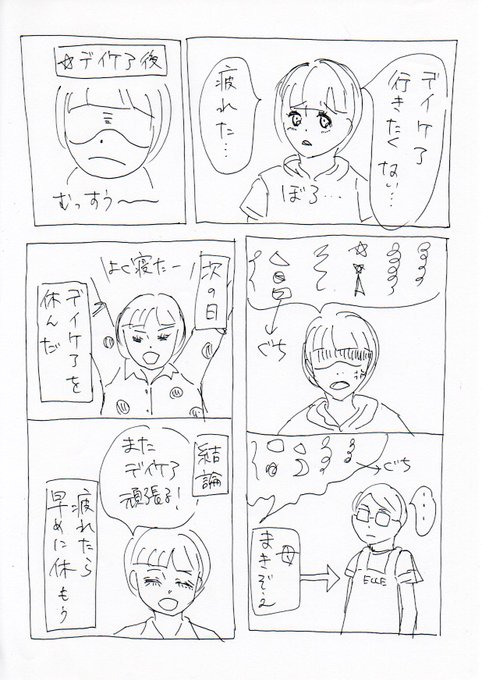 デイケア
行きたく
ない…
疲れた…
ぼろ…
☆デイケア後
むっすぅ〜
ぐち
ぐち
…
母
まきぞえ
ELLE
次の日
よく寝たー
デイケアを
休んだ
結論
また
デイケア
頑張る!
疲れたら
早めに休もう